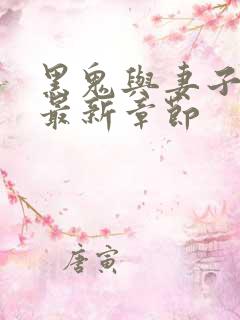 黑鬼與妻子
最新章節
唐寅